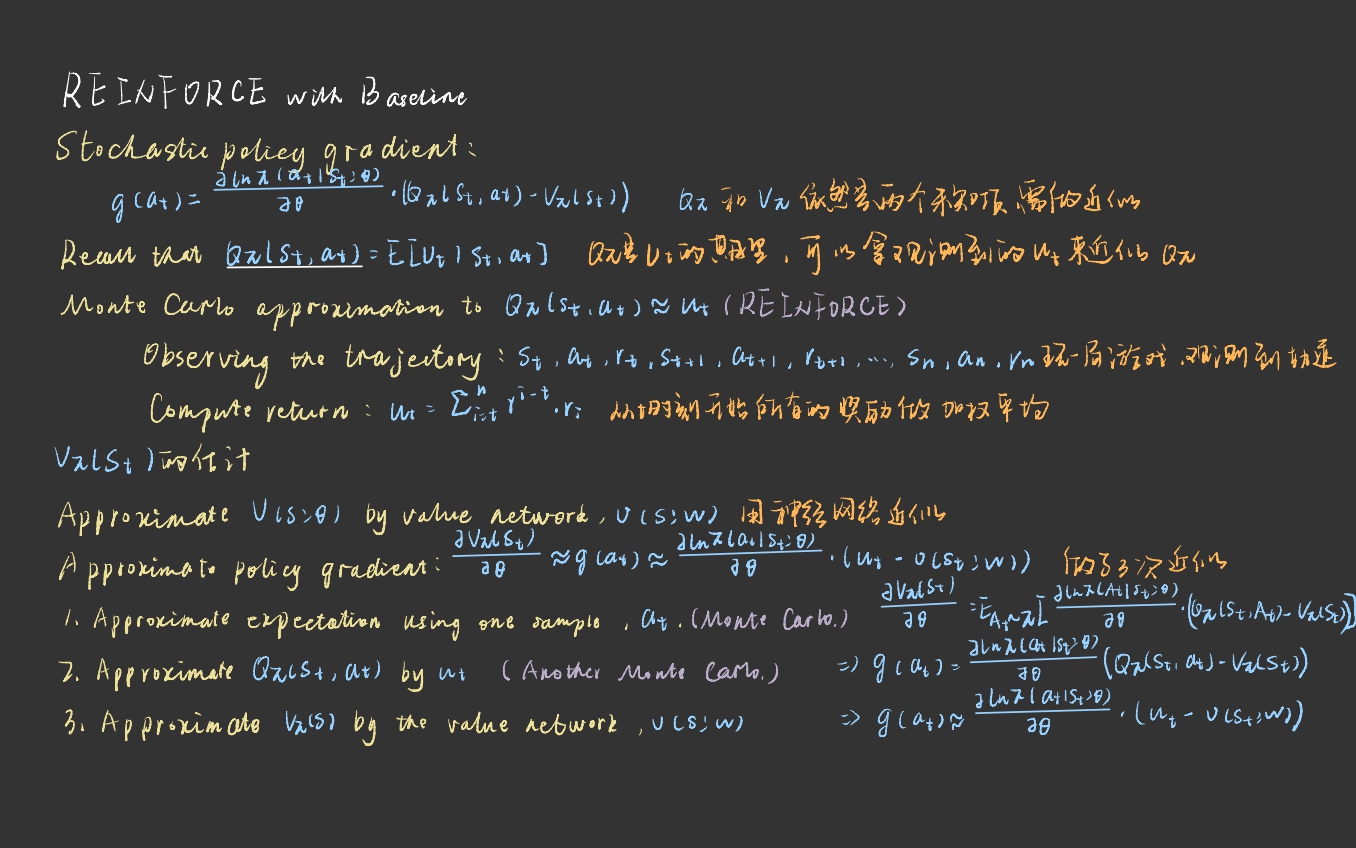 REINFORCE with Baseline
Stochastic policy gradient:
g(a_t) = ∂ln π(a_t|s_t;θ)/∂θ · (Q_π(s_t,a_t) - V_π(s_t))  Q_π 和 V_π 依然是两个未知项,需做近似
Recall that Q_π(s_t,a_t) = E[U_t|s_t,a_t]  Q_π是U_t的期望,可以拿观测到的u_t来近似Q_π
Monte Carlo approximation to Q_π(s_t,a_t) ≈ u_t (REINFORCE)
Observing the trajectory: s_t, a_t, r_t, s_{t+1}, a_{t+1}, r_{t+1}, ..., s_n, a_n, r_n 玩一局游戏,观测到轨迹
Compute return: u_t = Σ_{i=t}^n γ^{i-t}·r_i 从t时刻开始所有的奖励做加权平均
V_π(s_t)的估计
Approximate V(s;θ) by value network, v(s;w) 用神经网络近似
Approximate policy gradient: ∂V_π(s_t)/∂θ ≈ g(a_t) ≈ ∂ln π(a_t|s_t;θ)/∂θ · (u_t - v(s_t;w))  做了3次近似
1. Approximate expectation using one sample, a_t. (Monte Carlo.)  ∂V_π(s_t)/∂θ = E_{A_t~π}[∂ln π(A_t|s_t;θ)/∂θ · (Q_π(s_t,A_t) - V_π(s_t))]
2. Approximate Q_π(s_t,a_t) by u_t (Another Monte Carlo.)  => g(a_t) = ∂ln π(a_t|s_t;θ)/∂θ (Q_π(s_t,a_t) - V_π(s_t))
3. Approximate V_π(s) by the value network, v(s;w)  => g(a_t) ≈ ∂ln π(a_t|s_t;θ)/∂θ · (u_t - v(s_t;w))